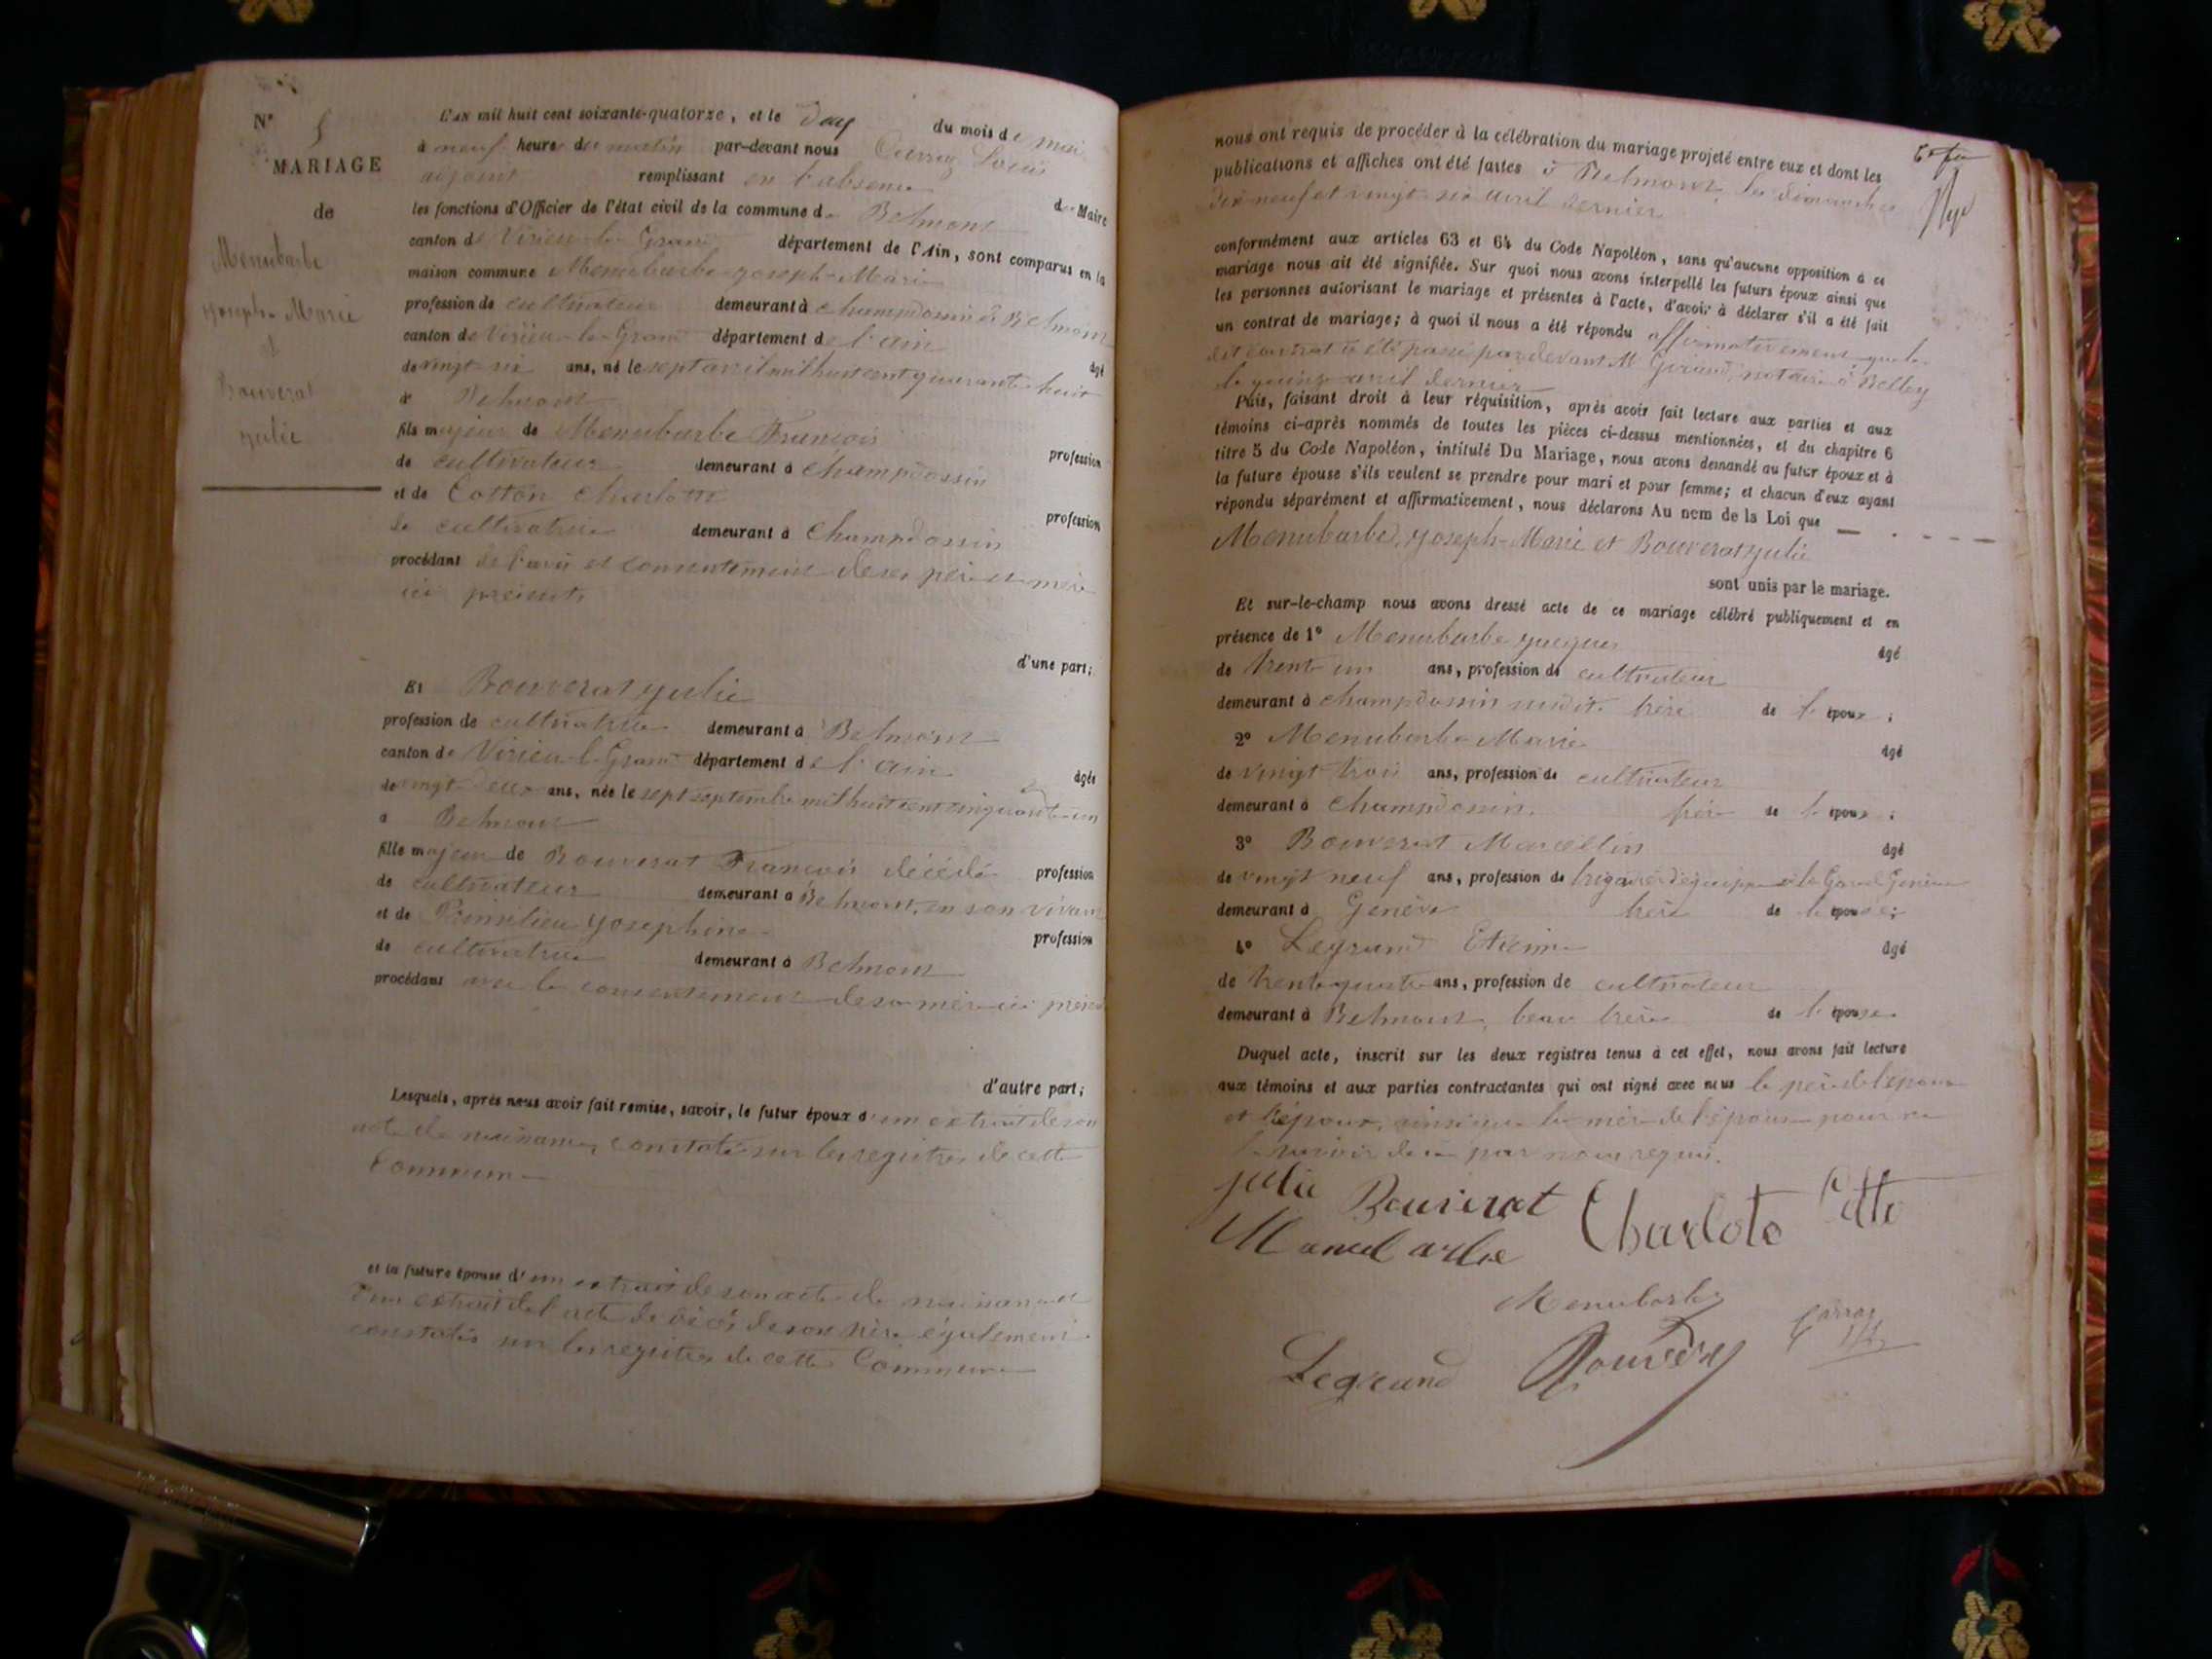 N° 5
MARIAGE
de
Menubarbe
Joseph-Marie
et
Bouverat
Julie
L'AN mil huit cent soixante-quatorze, et le du mois de mai
à neuf heure du matin par-devant nous Carraz Louis
adjoint remplissant en l'absence du Maire
les fonctions d'Officier de l'état civil de la commune de Belmont
canton de Virieu-le-Grand département de l'Ain, sont comparus en la
maison commune Menubarbe Joseph-Marie
profession de cultivateur demeurant à champdossin de Belmont
canton de Virieu-le-Grand département de l'ain âgé
de vingt six ans, né le sept avril mil huit cent quarante huit
à Belmont
fils majeur de Menubarbe François profession
de cultivateur demeurant à Champdossin
et de Cotton Charlotte profession
de cultivatrice demeurant à Champdossin
procédant de l'avis et consentement de ses père et mère
ici présents
d'une part;
Et Bouverat Julie
profession de cultivatrice demeurant à Belmont
canton de Virieu-le-Grand département de l'ain âgée
de vingt deux ans, née le sept septembre mil huit cent cinquante-un
à Belmont
fille majeur de Bouverat François décédé profession
de cultivateur demeurant à Belmont, en son vivant
et de Josephine profession
de cultivatrice demeurant à Belmont
procédant avec le consentement de sa mère ici
d'autre part;
Lesquels, après nous avoir fait remise, savoir, le futur époux d'un extrait de son
acte de naissance, constaté sur les registres de cette
Commune
et la future épouse d'un extrait de son acte de naissance et
d'un extrait de l'acte de décès de son père également
constatés sur les registres de cette Commune
nous ont requis de procéder à la célébration du mariage projeté entre eux et dont les
publications et affiches ont été faites à Belmont, les dimanches
dix neuf et vingt six avril dernier
conformément aux articles 63 et 64 du Code Napoléon, sans qu'aucune opposition à ce
mariage nous ait été signifiée. Sur quoi nous avons interpellé les futurs époux ainsi que
les personnes autorisant le mariage et présentes à l'acte, d'avoir à déclarer s'il a été fait
un contrat de mariage; à quoi il nous a été répondu affirmativement, que le
dit contrat a été passé par devant Me notaire à Belley
le quinze avril dernier
Puis, faisant droit à leur réquisition, après avoir fait lecture aux parties et aux
témoins ci-après nommés de toutes les pièces ci-dessus mentionnées, et du chapitre 6
titre 5 du Code Napoléon, intitulé Du Mariage, nous avons demandé au futur époux et à
la future épouse s'ils veulent se prendre pour mari et pour femme; et chacun d'eux ayant
répondu séparément et affirmativement, nous déclarons Au nom de la Loi que
Menubarbe, Joseph-Marie et Bouverat Julie
sont unis par le mariage.
Et sur-le-champ nous avons dressé acte de ce mariage célébré publiquement et en
présence de 1° Menubarbe Jacques âgé
de trente un ans, profession de cultivateur
demeurant à champdossin susdit frère de l'époux;
2° Menubarbe Marie âgé
de vingt trois ans, profession de cultivateur
demeurant à Champdossin, frère de l'époux;
3° Bouverat Marcellin âgé
de vingt neuf ans, profession de
demeurant à Genève frère de l'épouse;
4° Legrand Etienne âgé
de trente quatre ans, profession de cultivateur
demeurant à Belmont, beau frère de l'épouse
Duquel acte, inscrit sur les deux registres tenus à cet effet, nous avons fait lecture
aux témoins et aux parties contractantes qui ont signé avec nous le père de l'époux
et l'époux, ainsi que la mère de l'épouse pour ne
le savoir de ce par nous requis.
Julie Bouverat Charlote
Menubarbe
Legrand